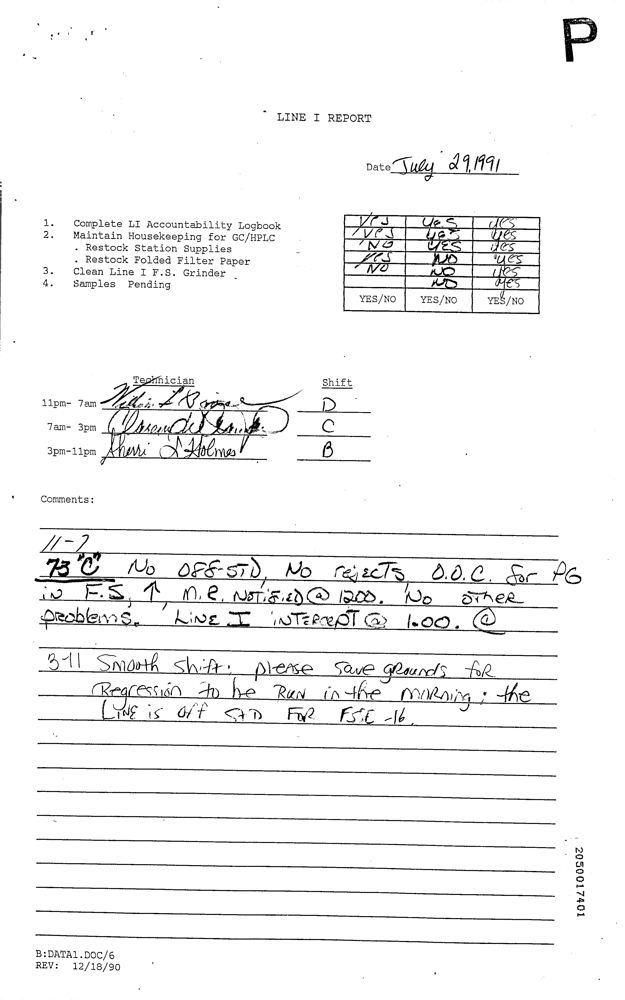 P
LINE I REPORT
Date July 29, 1991
1. Complete LI Accountability Logbook
2. Maintain Housekeeping for GC/HPLC
. Restock Station Supplies
. Restock Folded Filter Paper
3. Clean Line I F.S. Grinder
4. Samples Pending
YES YES yes
YES YES yes
NO YES yes
YES NO yes
NO NO yes
NO yes
YES/NO YES/NO YES/NO
Technician Shift
11pm- 7am D
7am- 3pm C
3pm-11pm Sherri L Holmes B
Comments:
11-7
73 "C" No OFF-STD, No rejects, O.O.C. for PG
in F.S, ↑ M.R. Notified @ 1200. No other
problems. Line I intercept @ 1.00.
3-11 Smooth Shift; please save grounds for
Regression to be Run in the morning; the
Line is off STD FOR FSE-16.
2050017401
B:DATA1.DOC/6
REV: 12/18/90